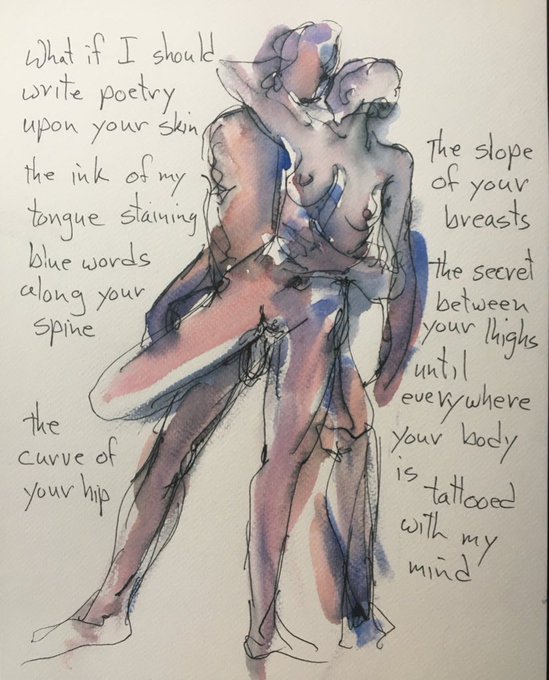 What if I should
write poetry
upon your skin
the ink of my
tongue staining
blue words
along your
spine
the
curve of
your hip
The slope
of your
breasts
the secret
between
your thighs
until
everywhere
your body
is
tattooed
with my
mind